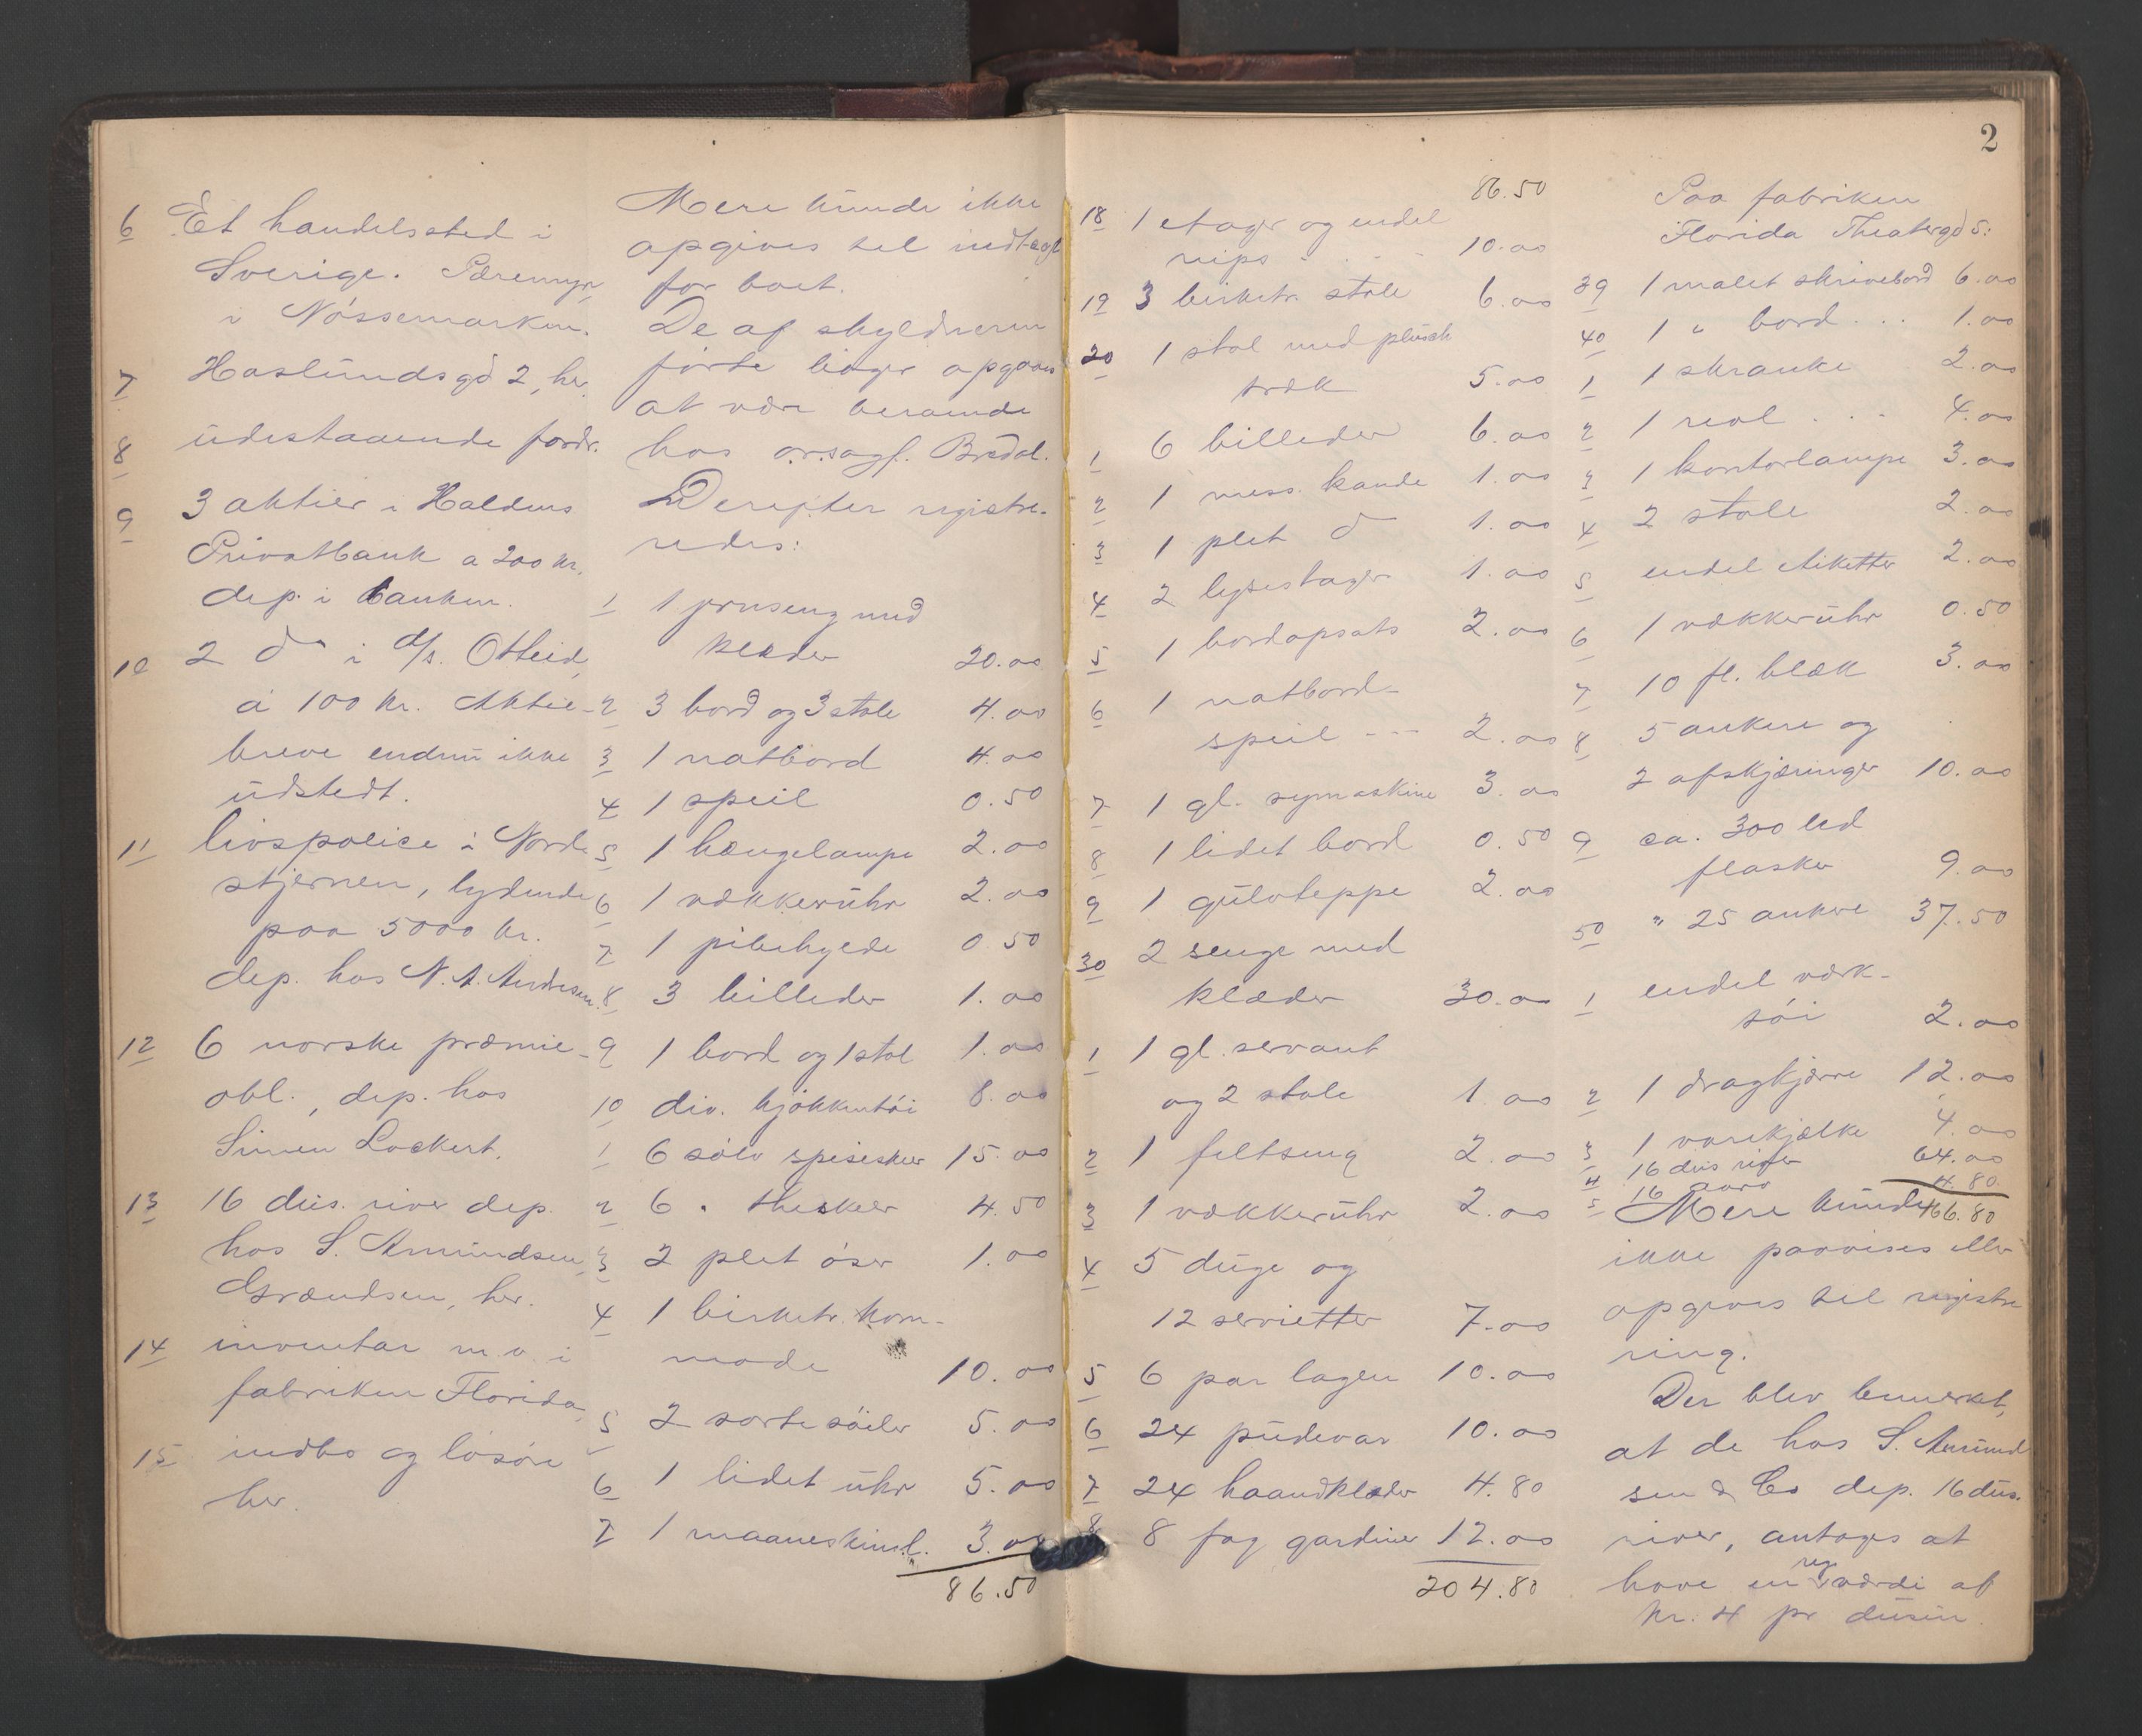 6 Et handelssted i
Sverige. Pæremyr,
i Nössemarken.
7 Haslundsgd 2, her.
8 udestaaende fordr.
9 3 aktier i Haldens
Privatbank a 200 kr,
dep. i banken.
10 2 do i A/s. Otteid,
á 100 kr. Aktie-
breve endnu ikke
udstedt.
11 livspolice i Nord-
stjernen, lydende
paa 5000 kr.
dep. hos N. A. Andresen.
12 6 norske præmie-
obl., dep. hos
Simen Lockert.
13 16 dus. river dep.
hos S. Amundsen,
Grændsen, her.
14 inventar m. v. i
fabriken Florida,
15 indbo og lösöre
her.
Mere kunde ikke
opgives til indtægt
for boet.
De af skyldneren
förte böger opgaves
at være beroende
hos o.r.sagf. Brødal.
Derefter registre-
redes:
1 1 jernseng med
klæder 20.00
2 3 bord og 3 stole 4.00
3 1 natbord 4.00
4 1 speil 0.50
5 1 hængelampe 2.00
6 1 vækkeruhr 2.00
7 1 pibehylde 0.50
8 3 billeder 1.00
9 1 bord og 1 stol 1.00
10 div. kjökkentöi 8.00
1 6 sölv spiseskeer 15.00
2 6 " theskeer 4.50
3 2 plet öser 1.00
4 1 birketr. kom-
mode 10.00
5 2 sorte söiler 5.00
6 1 lidet uhr 5.00
7 1 maaneskinsl. 3.00
86.50
2
86.50
18 1 etager og endel
nips . . . 10.00
19 3 birketr. stole 6.00
20 1 stol med plusch
træk 5.00
1 6 billeder 6.00
2 1 mess. kande 1.00
3 1 plet do 1.00
4 2 lysestager 1.00
5 1 bordopsats 2.00
6 1 natbord-
speil --- 2.00
7 1 gl. symaskine 3.00
8 1 lidet bord 0.50
9 1 gulvteppe 2.00
30 2 senge med
klæder 30.00
1 1 gl. servant
og 2 stole 1.00
2 1 feltseng 2.00
3 1 vækkeruhr 2.00
4 5 duge og
12 servietter 7.00
5 6 par lagen 10.00
6 24 pudevar 10.00
7 24 haandklæder 4.80
8 8 fag gardiner 12.00
204.80
Paa fabriken
Florida Theatergd 5:
39 1 malet skrivebord 6.00
40 1 " bord . . . 1.00
1 1 skranke 2.00
2 1 reol . . . 4.00
3 1 kontorlampe 3.00
4 2 stole 2.00
5 endel etiketter 2.00
6 1 vækkeruhr 0.50
7 10 fl. blæk 3.00
8 5 ankere og
2 afskjæringer 10.00
9 ca. 300 led
flasker 9.00
50 " 25 ankere 37.50
1 endel værk-
töi 2.00
2 1 dragkjærre 12.00
3 1 varekjælke 4.00
4 16 dus river 64.00
5 16 4.80
Mere kunde 466.80
ikke paavises eller
opgives til registre
ring.
Der blev bemerket,
at de hos S. Amund
sen & Co dep. 16 dus.
river, antages at
have en reg værdi af
kr. 4 pr dusin.